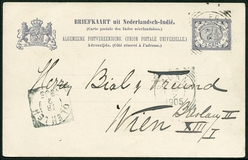 BRIEFKAART uit Nederlandsch-Indië.
(Carte postale des Indes néerlandaises.)
ALGEMEENE POSTVEREENIGING. (UNION POSTALE UNIVERSELLE.)
Adreszijde. (Côté réservé à l'adresse.)
Herrn Bial & Freund
Wien
XIII/I